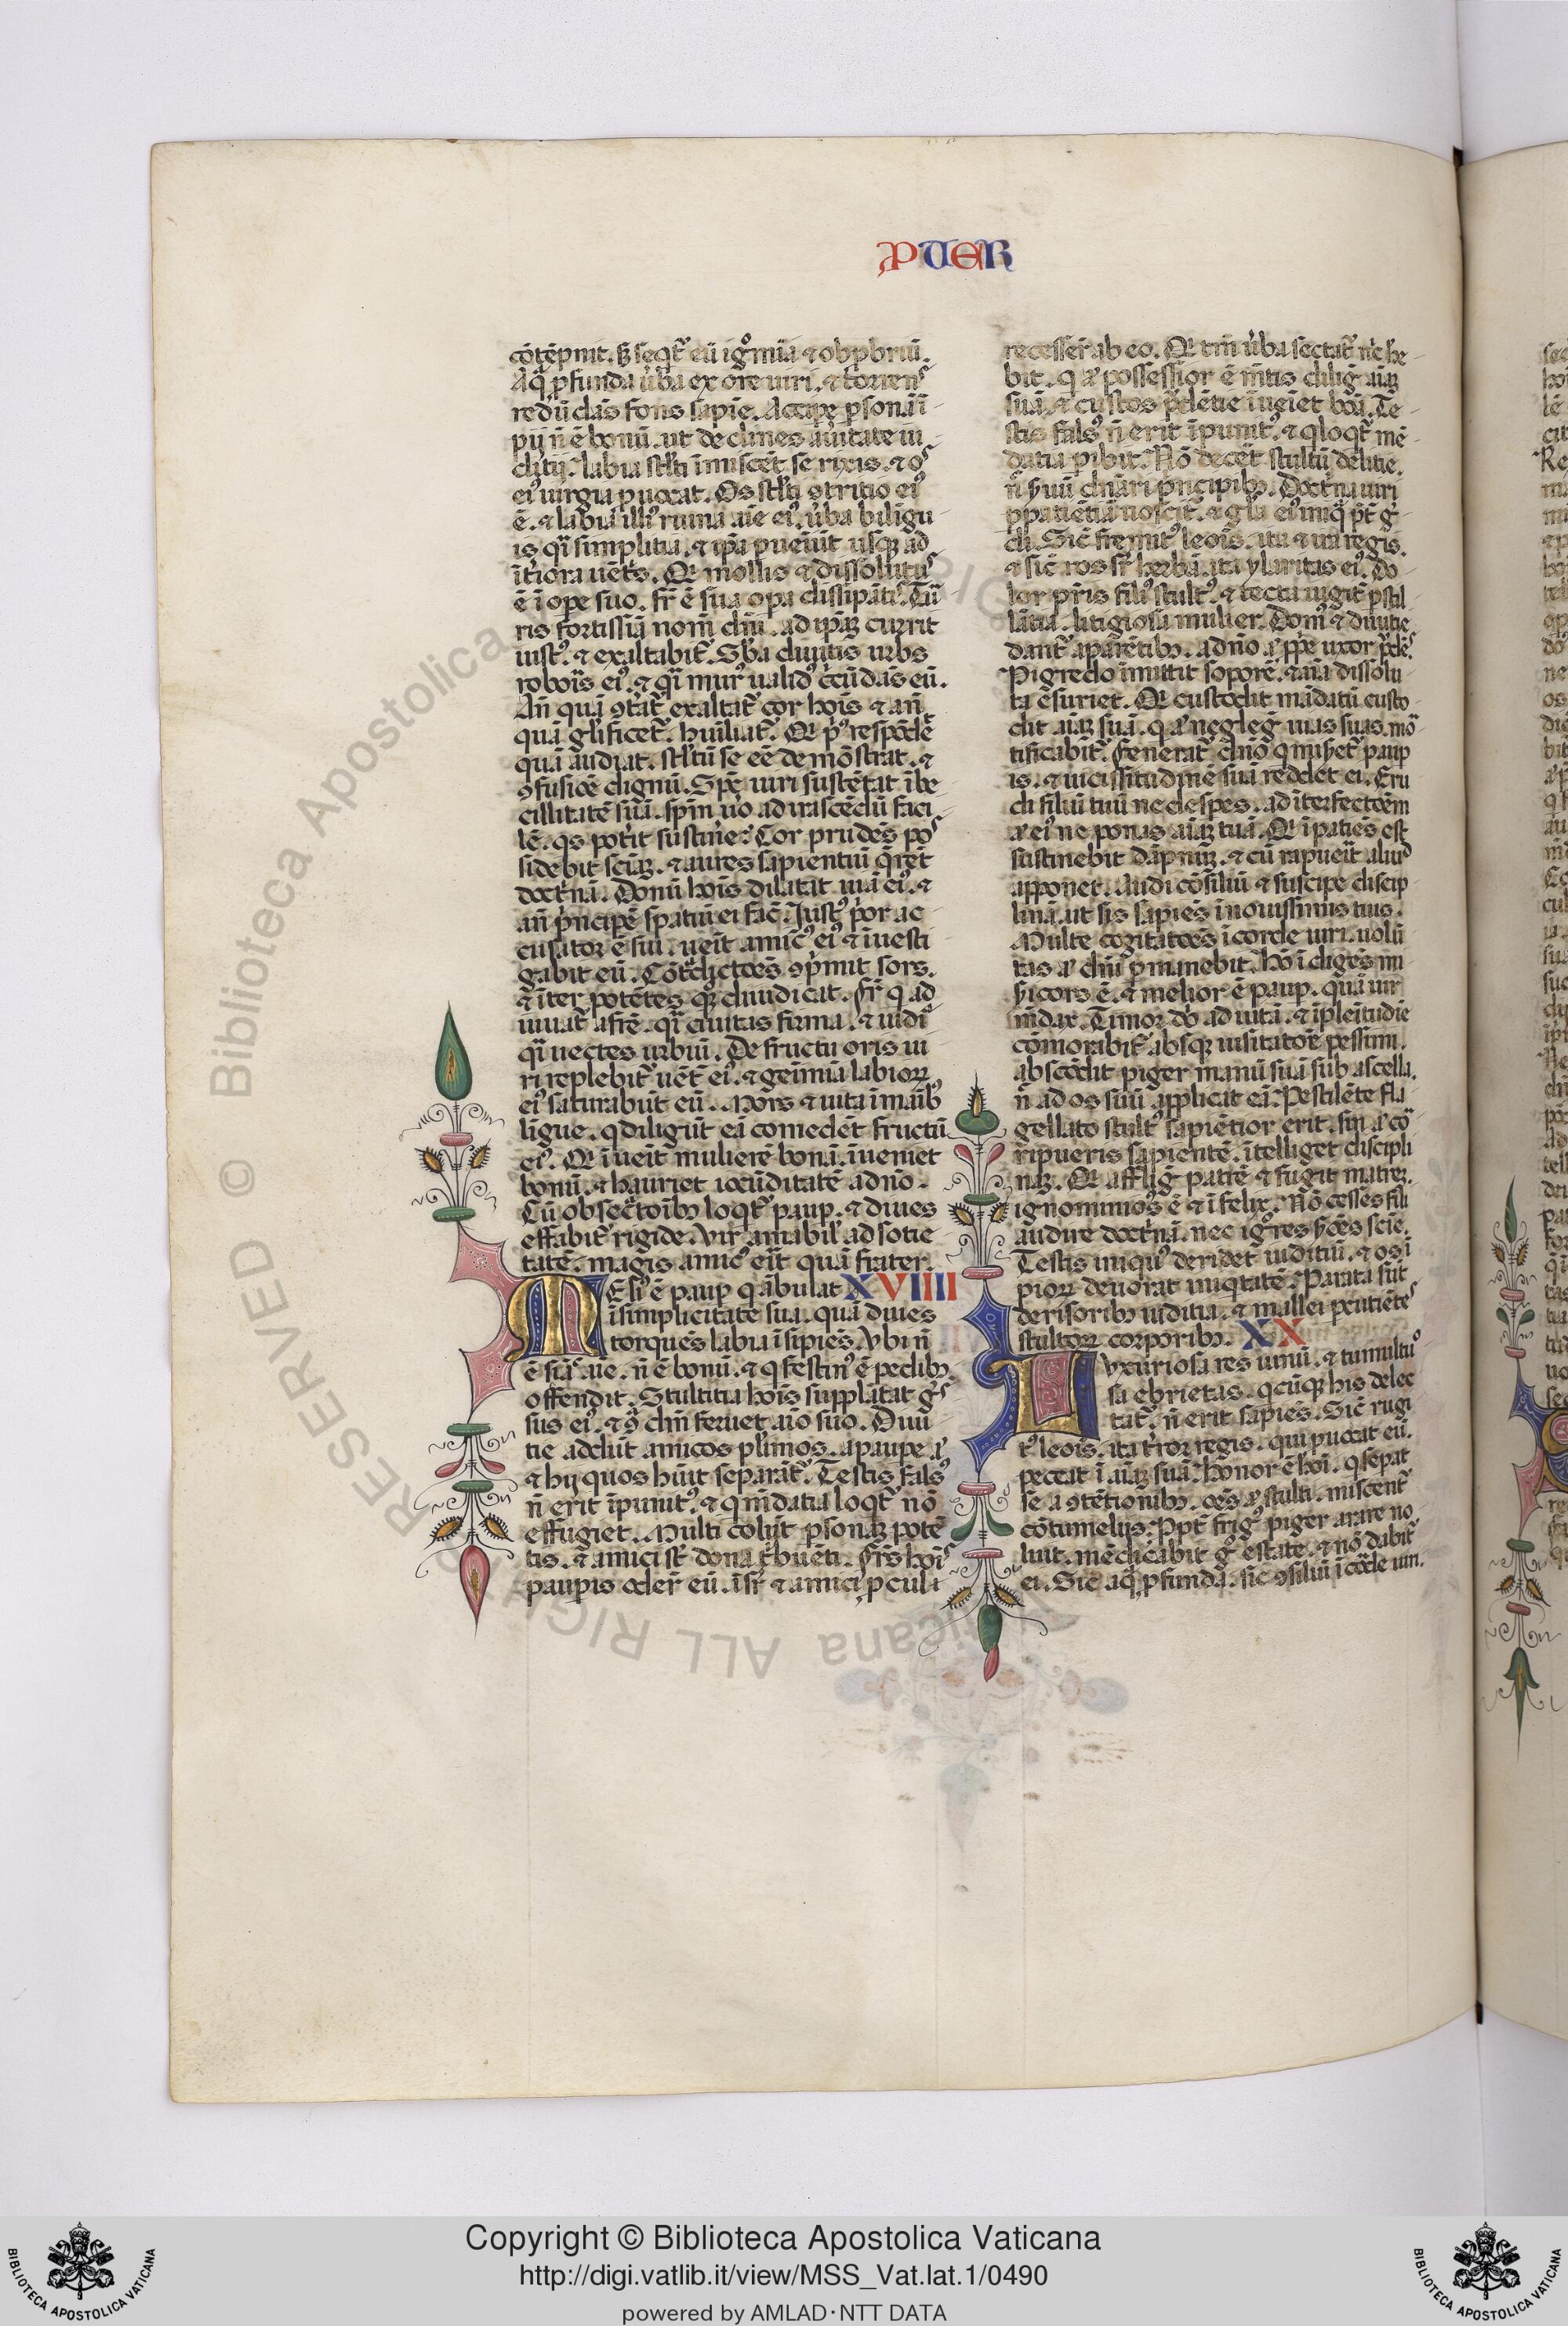 PVER
cōtēpnit. sȝ seqt᷑ eū ig̊mīa ⁊ obpbriū.
Aq̄ pfunda ūba ex ore uiri. ⁊ torrenˢ
redūdās fons sapīe. Accipe psonā ī
pij n̄ ē bonū. ut declines auītate iu
ditij. labia stl̓ti īmiscēt se rixis. ⁊ oˢ
eiꝰ iurgia puocat. Os stl̓ti ꝯtritio eiꝰ
ē. ⁊ labia illiꝰ ruina aīe eiꝰ. ūba biligu
is q̄i simplitia. ⁊ ip̄a pueiūt usqȝ ad
īt̓iora uēt̓s. Qr mollis ⁊ dissolutuˢ
ē ī ope suo. fr̄ ē sua opa dissipātꝭ. Tū
ris fortissīa nom̄ dn̄i. ad ip̄aȝ currit
iustꝰ. ⁊ exaltabit᷑. Sb̄a diuitis urbs
robors eiꝰ. ⁊ q̄i murꝰ ualidꝰ c̄cūdās eū.
An̄ quā ꝯtāt᷑ exaltat᷑ cor hois ⁊ an̄
quā gl̓ificet᷑. huīliat᷑. Qr pꝰ respōdē
quā audiat. stl̓tū se eē demōstrat. ⁊
ꝯfusiōe dignū. Spē uiri sustētat ībe
cillitatē suā. spīm uō ad irascēdū faci
lē. qs pot̓it sustine᷑: Cor prudēs poˢ
sidebit sciāȝ. ⁊ aures sapientiū q̄rēt
doct̓nā. Donū hois dilatat uiā eiꝰ. ⁊
an̄ p̓ncipē spatiū ei fac̄. Justꝰ p̓or ac
cusator ē sui. ueīt amicꝰ eiꝰ ⁊ īuesti
gabit eū. Cōt᷑dictōes ꝯp̓mit sors.
⁊ īter potētes qȝ diiudicat. Fr̄ q ad
iuuat᷑ afrē. q̄i ciuitas firma. ⁊ iudiᵃ
q̄i uectes urbiū. De fructu oris ui
ri replebit᷑ uēt̓ eiꝰ. ⁊ geīmīa labioꝝ
eiꝰ saturabūt eū. Mors ⁊ uita īmaībꝰ
līgue. q diligūt eā comedēt fructū
eiꝰ. Qr īueīt mulierē bonā. īueniet
bonū. ⁊ hauriet iocūditatē adn̄o.
Cū obsec᷑toībȝ loqt᷑ paup. ⁊ diues
effabit᷑ rigide. Vir amabil̓ ad sotie
tatē. magis amicꝰ eīt quā frater.
MElꝰ ē paup q ābulat XVIIII
īsimplicitate sua. quā diues
torquēs labia īsipiēs. Vbi n̄
ē sīa᷑ aīe. n̄ ē bonū. ⁊ q festinꝰ ē pedibȝ
offendit. Stultitia hois supplātat g̓ˢ
sus eiꝰ. ⁊ ꝯ dn̄ feruet aīo suo. Diui
tie addūt amicos pl̓imos. apaupe ꝟ
⁊ hij quos hūit separāt᷑. Testis falsꝰ
n̄ erit īpunitꝰ. ⁊ q m̄datia loqt᷑ nō
effugiet. Multi colūt psonaȝ potē
tis. ⁊ amici st̄ dona t᷑buēti. Fr̄s hoīˢ
paupis oder̄ eū. īsr̄ ⁊ amici pcul ꝛ
recesser̄ ab eo. Qr tm̄ ūba sectat᷑ n̄c he
bit. q ꝟ possessior ē m̄tis dilig̓ aīaȝ
suā. ⁊ custos p̄dētie īueīet bōa. Te
stis falsꝰ n̄ erit īpunitꝰ. ⁊ q loqt᷑ mē
datia pibit. Nō decēt stultū delitie.
n̄ ẜuū dn̄ari p̓ncipibȝ. Doct̓na uiri
ppatiētiā noscit᷑. ⁊ gl̓a eiꝰ iniq̄ pt᷑g̓
di. Sic̄ fremitꝰ leois. ita ⁊ ira regis.
⁊ sic̄ ros sr̄ herbā. ita ylaritas eiꝰ. Do
lor pr̄is filiꝰ stultꝰ. ⁊ tecta iugit᷑ pstil
lātia. litigiosa mulier. Domꝰ ⁊ diuitie
dant᷑ aparētibȝ. adn̄o ꝟ pp̄e uxor p̄dēˢ.
Pigredo īmittit soporē. ⁊ aīa dissolu
ta ēsuriet. Qr custodit mādatū custo
dit aīaȝ suā. q ꝟ negleg̓ uias suas. moᷓ
tificabit᷑. Fenerat᷑ dn̄o q miẜet᷑ paup
is. ⁊ uicissitudinē suā reddet ei. Eru
di filiū tuū ne despes. ad īterfectōem
ꝟ eiꝰ ne ponas aīaȝ tuā. Qr īpatiēs est
sustinebit dāpnūȝ. ⁊ cū rapueīt aliud
apponet. Audi cōsiliū ⁊ suscipe discip
linā. ut sis sapiēs īnouissimis tuis.
Multe cogitatōes īcorde uiri. uolū
tas ꝟ dn̄i pmanebit. Hō īdigēs mi
ẜicors ē. ⁊ melior ē paup. quā uir
m̄dax. Timor dn̄i ad uitā. ⁊ īpleītudīe
cōmorabit᷑ absqȝ uisitatōe pessimi.
abscōdit piger manū suā sub ascella.
n̄ ad os suū applicat eā: Pestilēte fla
gellato stultꝰ sapiētior erit. sin ꝟ coᷓ
ripueris sapientē. ītelliget discipli
naȝ. Qr afflig̓ patrē ⁊ fugit matreȝ.
ignominiosꝰ ē ⁊ īfelix. Nō cesses fili
audire doct̓nā. nec ig̊res ẜōes scīe.
Testis iniquꝰ deridet iuditiū. ⁊ os ī
pioꝝ deuorat iniqtatē. Parata sūt
derisoribȝ iuditia. ⁊ mallei pcutiēteˢ
stultoꝝ corporibȝ. XX
Luxuriosa res uinū. ⁊ tumultuᵒ
sa ebrietas. qcūqȝ his delec
tat᷑. n̄ erit sapiēs. Sic̄ rugi
tꝰ leois. ita t̓ror regis. qui puocat eū.
peccat ī aīaȝ suā. Honor ē hoi. q sepat
se a ꝯtētionibȝ. oēs ꝟ stulti. miscent᷑
cōtumelijs. Ppt̓ frigꝰ piger arare no
luit. mēdicabit g̊ estate. ⁊ nō dabit᷑
ei. Sic̄ aq̄ pfunda. sic ꝯsiliū ī corde uiri.
Copyright © Biblioteca Apostolica Vaticana
http://digi.vatlib.it/view/MSS_Vat.lat.1/0490
powered by AMLAD·NTT DATA